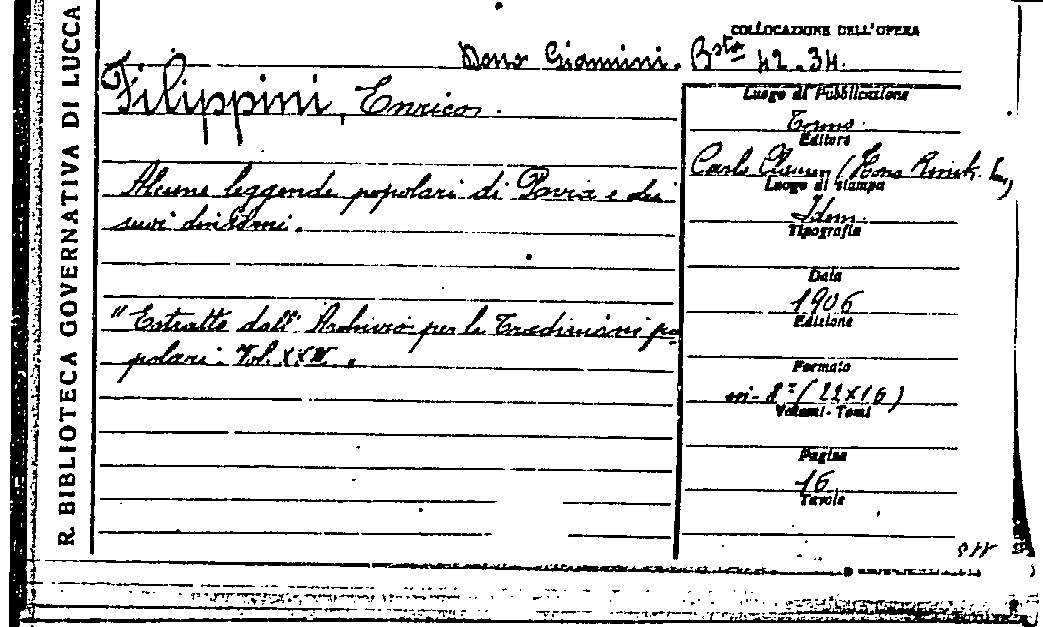 R. BIBLIOTECA GOVERNATIVA DI LUCCA
COLLOCAZIONE DELL'OPERA
Dono Giannini. Bsta 42-34.
Filippini, Enrico.
Luogo di Pubblicazione
Torino.
Editore
Carlo Clausen (Hans Rinck
Alcune leggende popolari di Pavia e dei
suoi dintorni.
Luogo di stampa
Idem.
Tipografia
Data
1906
"Estratto dall' Archivio per le Tradizioni po-
polari. Vol. XXIII.
Edizione
Formato
in-8° (22x16)
Volumi - Tomi
Pagine
16
Tavole